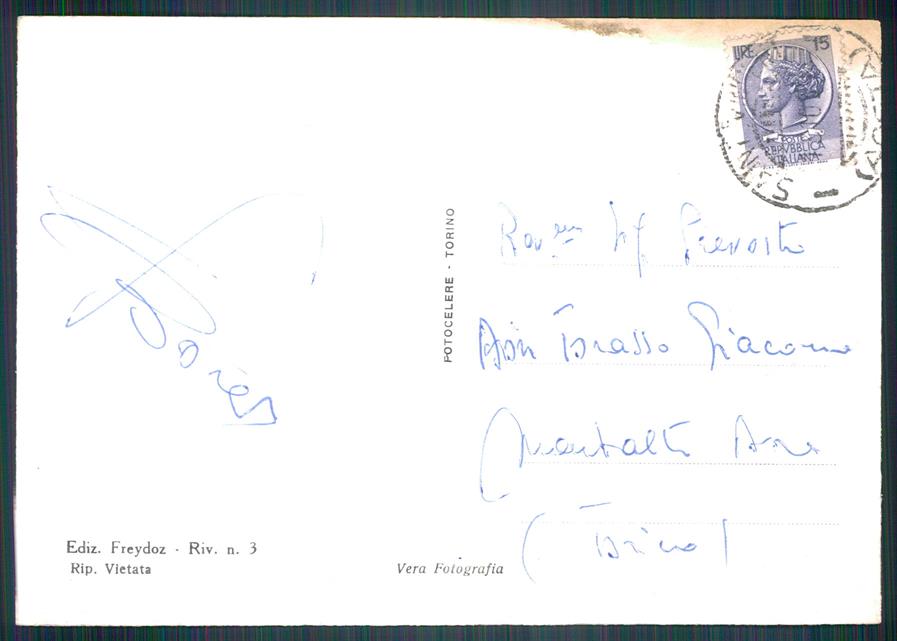 LIRE 15
POSTE
REPVBBLICA
ITALIANA
(AOSTA)
POTOCELERE - TORINO
Prevosto
Don Brasso Giacomo
Montalto Dora
(Torino)
Ediz. Freydoz - Riv. n. 3
Rip. Vietata
Vera Fotografia